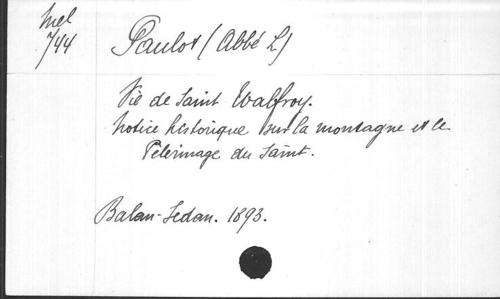 Mel
744
Paulot (Abbé L)
Vie de Saint Walfroy.
Notice historique sur la montagne et le
Pèlerinage du Saint.
Balan-Sedan. 1893.